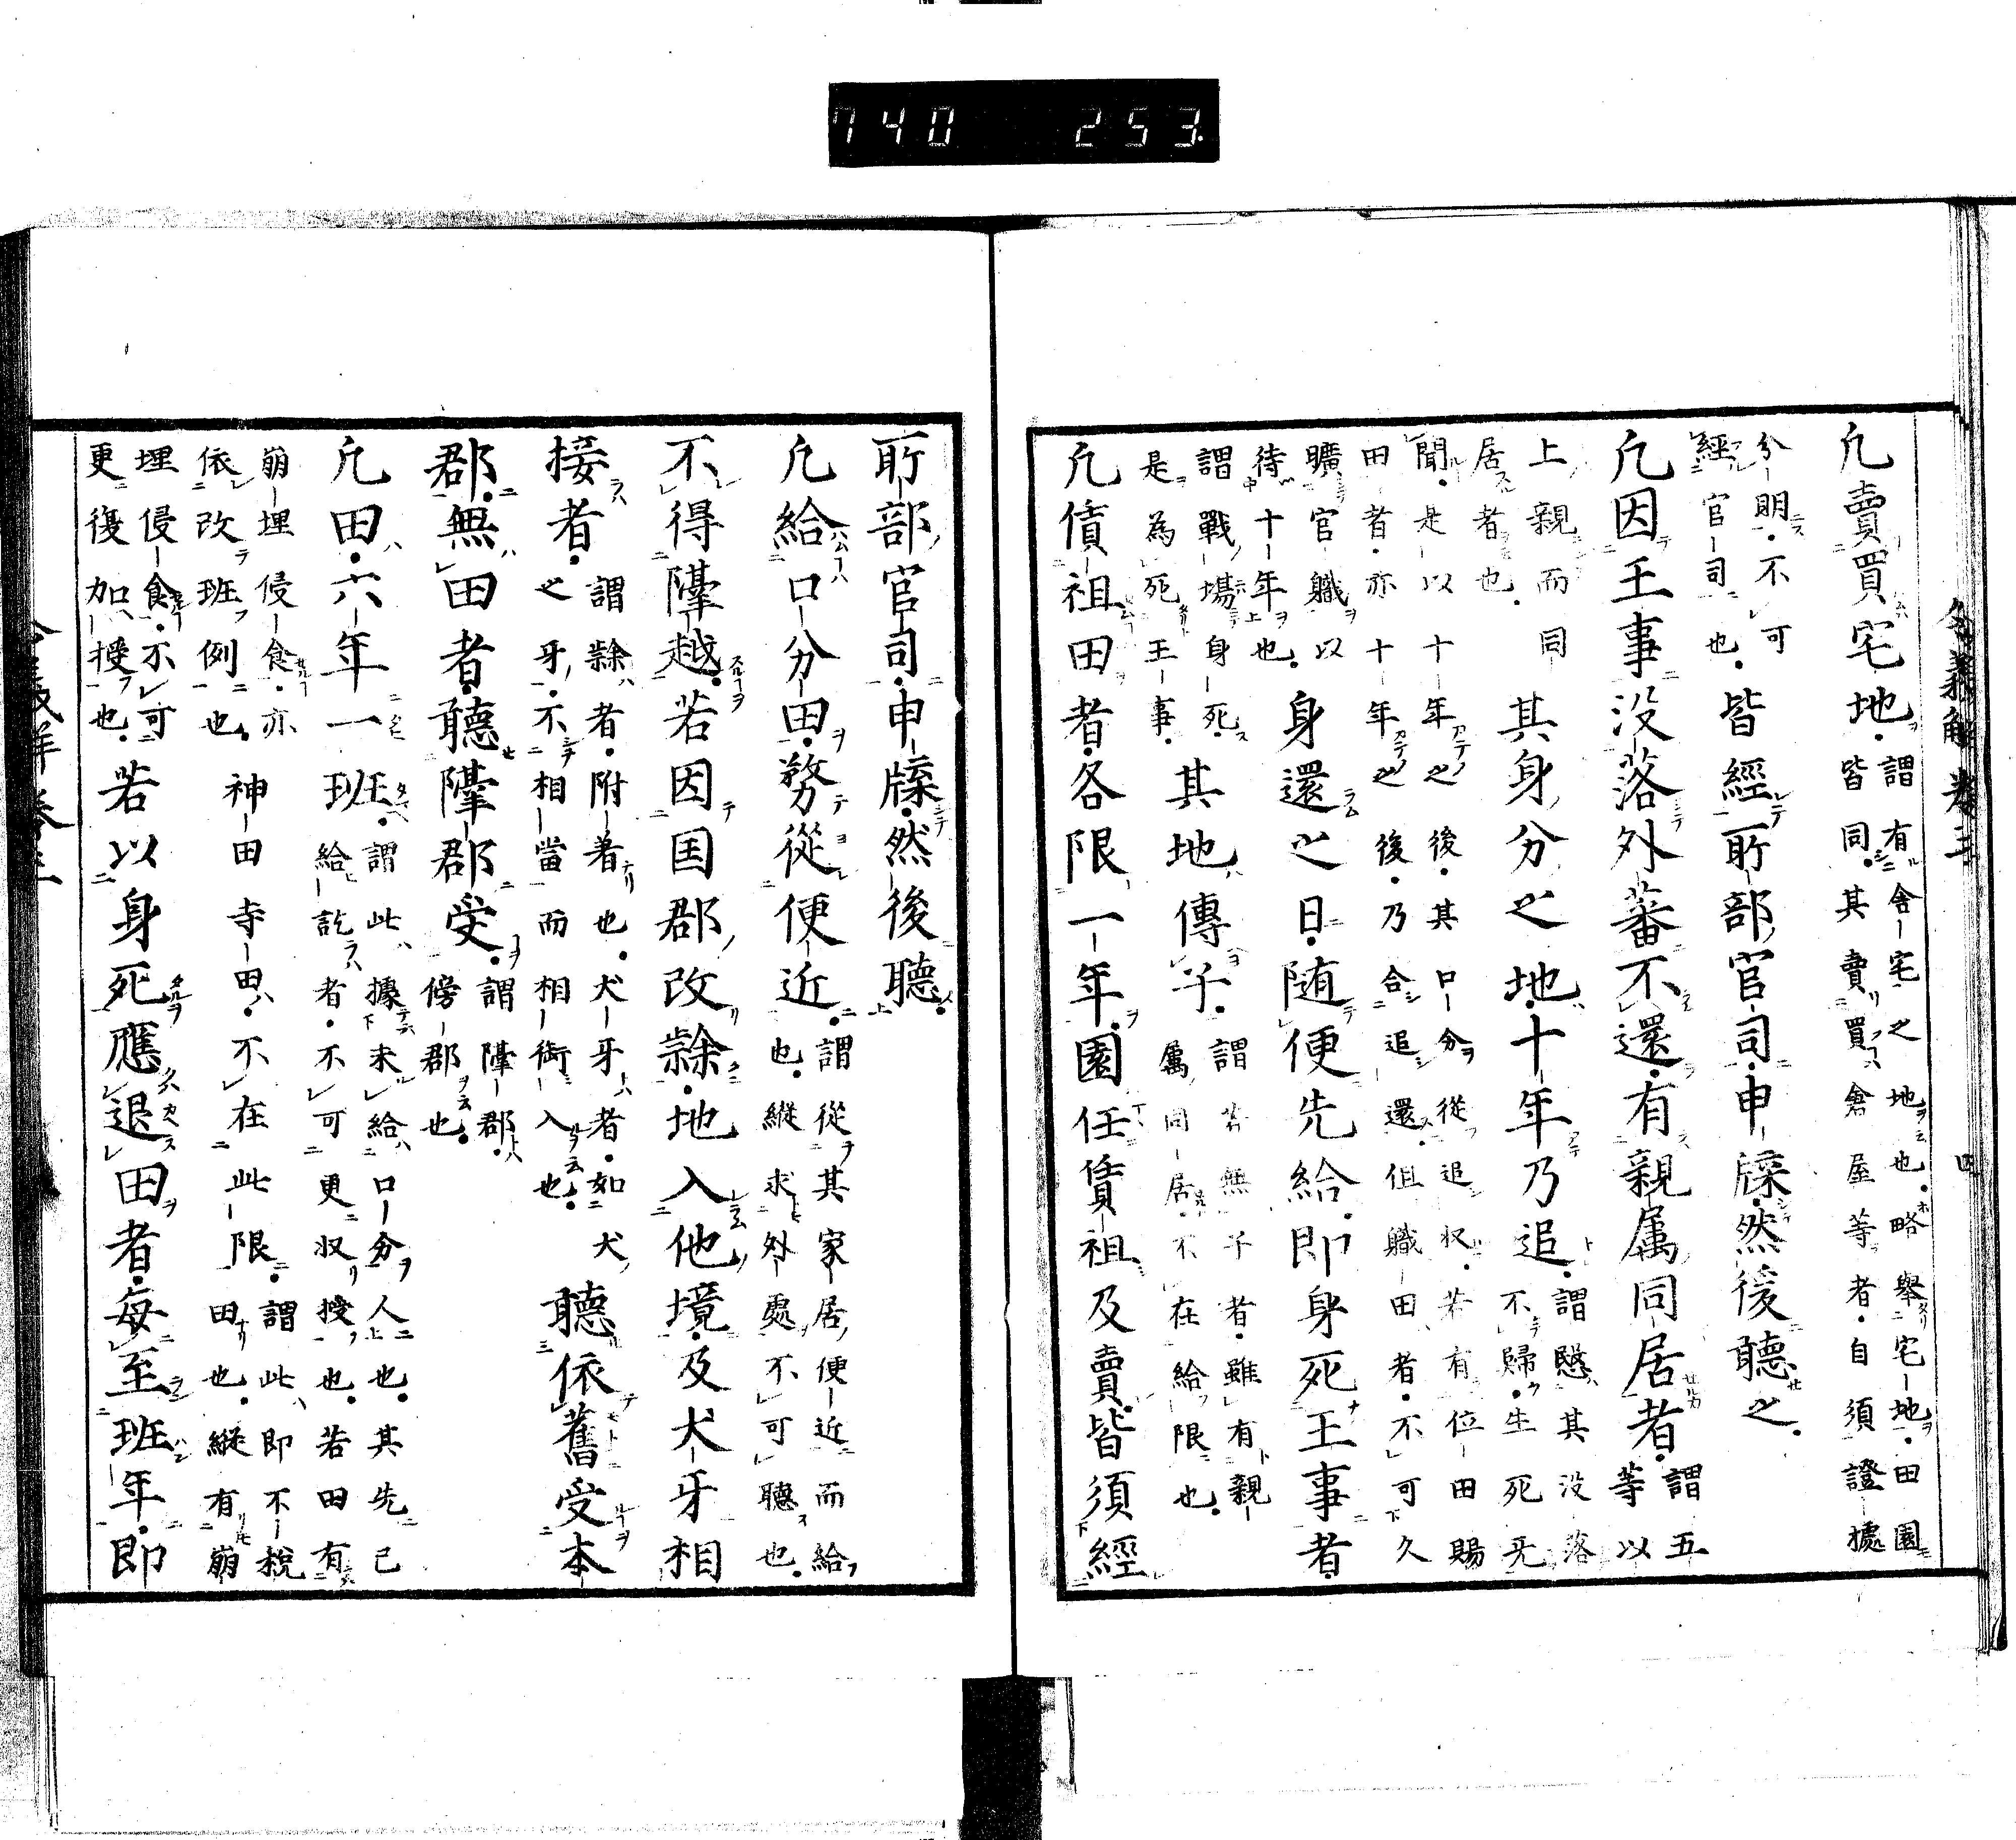 740 253
令義解 巻三 四
凢賣買宅地謂有舎宅之地也略舉宅地田園
皆同其賣買倉屋等者自須證據
分明不可
經官司也皆經所部官司申牒然後聽之
凢因王事没落外蕃不還有親属同居者謂五
等以
上親而同
居者也其身分之地十年乃追謂愍其没落
不歸生死旡
聞是以十年之後其口分從追収若有位田賜
田者亦十年之後乃合追還但職田者不可久
曠官職以
待十年也身還之日随便先給即身死王事者
謂戰場身死
是為死王事其地傳子謂若無子者雖有親
属同居不在給限也
凢賃租田者各限一年園任賃租及賣皆須經
所部官司申牒然後聽
凢給口分田務從便近謂從其家居便近而給
也縱求外處不可聽也
不得隔越若因国郡改隷地入他境及犬牙相
接者謂隷者附着也犬牙者如犬
之牙不相當而相銜入也聽依舊受本
郡無田者聽隔郡受謂隔郡
傍郡也
凢田六年一班謂此據未給口分人也其先已
給訖者不可更収授也若田有
崩埋侵食亦
依改班例也神田寺田不在此限謂此即不税
田也縱有崩
埋侵食不可
更復加授也若以身死應退田者毎至班年即